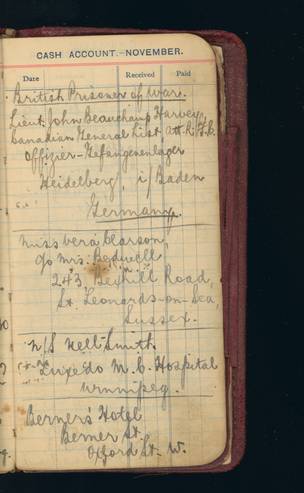 CASH ACCOUNT.—NOVEMBER.
Date Received Paid
British Prisoner of War.
Lieut. John Beauchamp Harvey,
Canadian General List att. R.F.C.
Offizier-Gefangenenlager
Heidelberg, i/Baden
Germany.
Miss Vera Clarson,
c/o Mrs. Bodwell
243 Bexhill Road,
St. Leonards-on-Sea,
Sussex.
N/S Nell Smith
Tuxedo M.C. Hospital
Winnipeg.
Berner's Hotel
Berner St.
Oxford St. W.